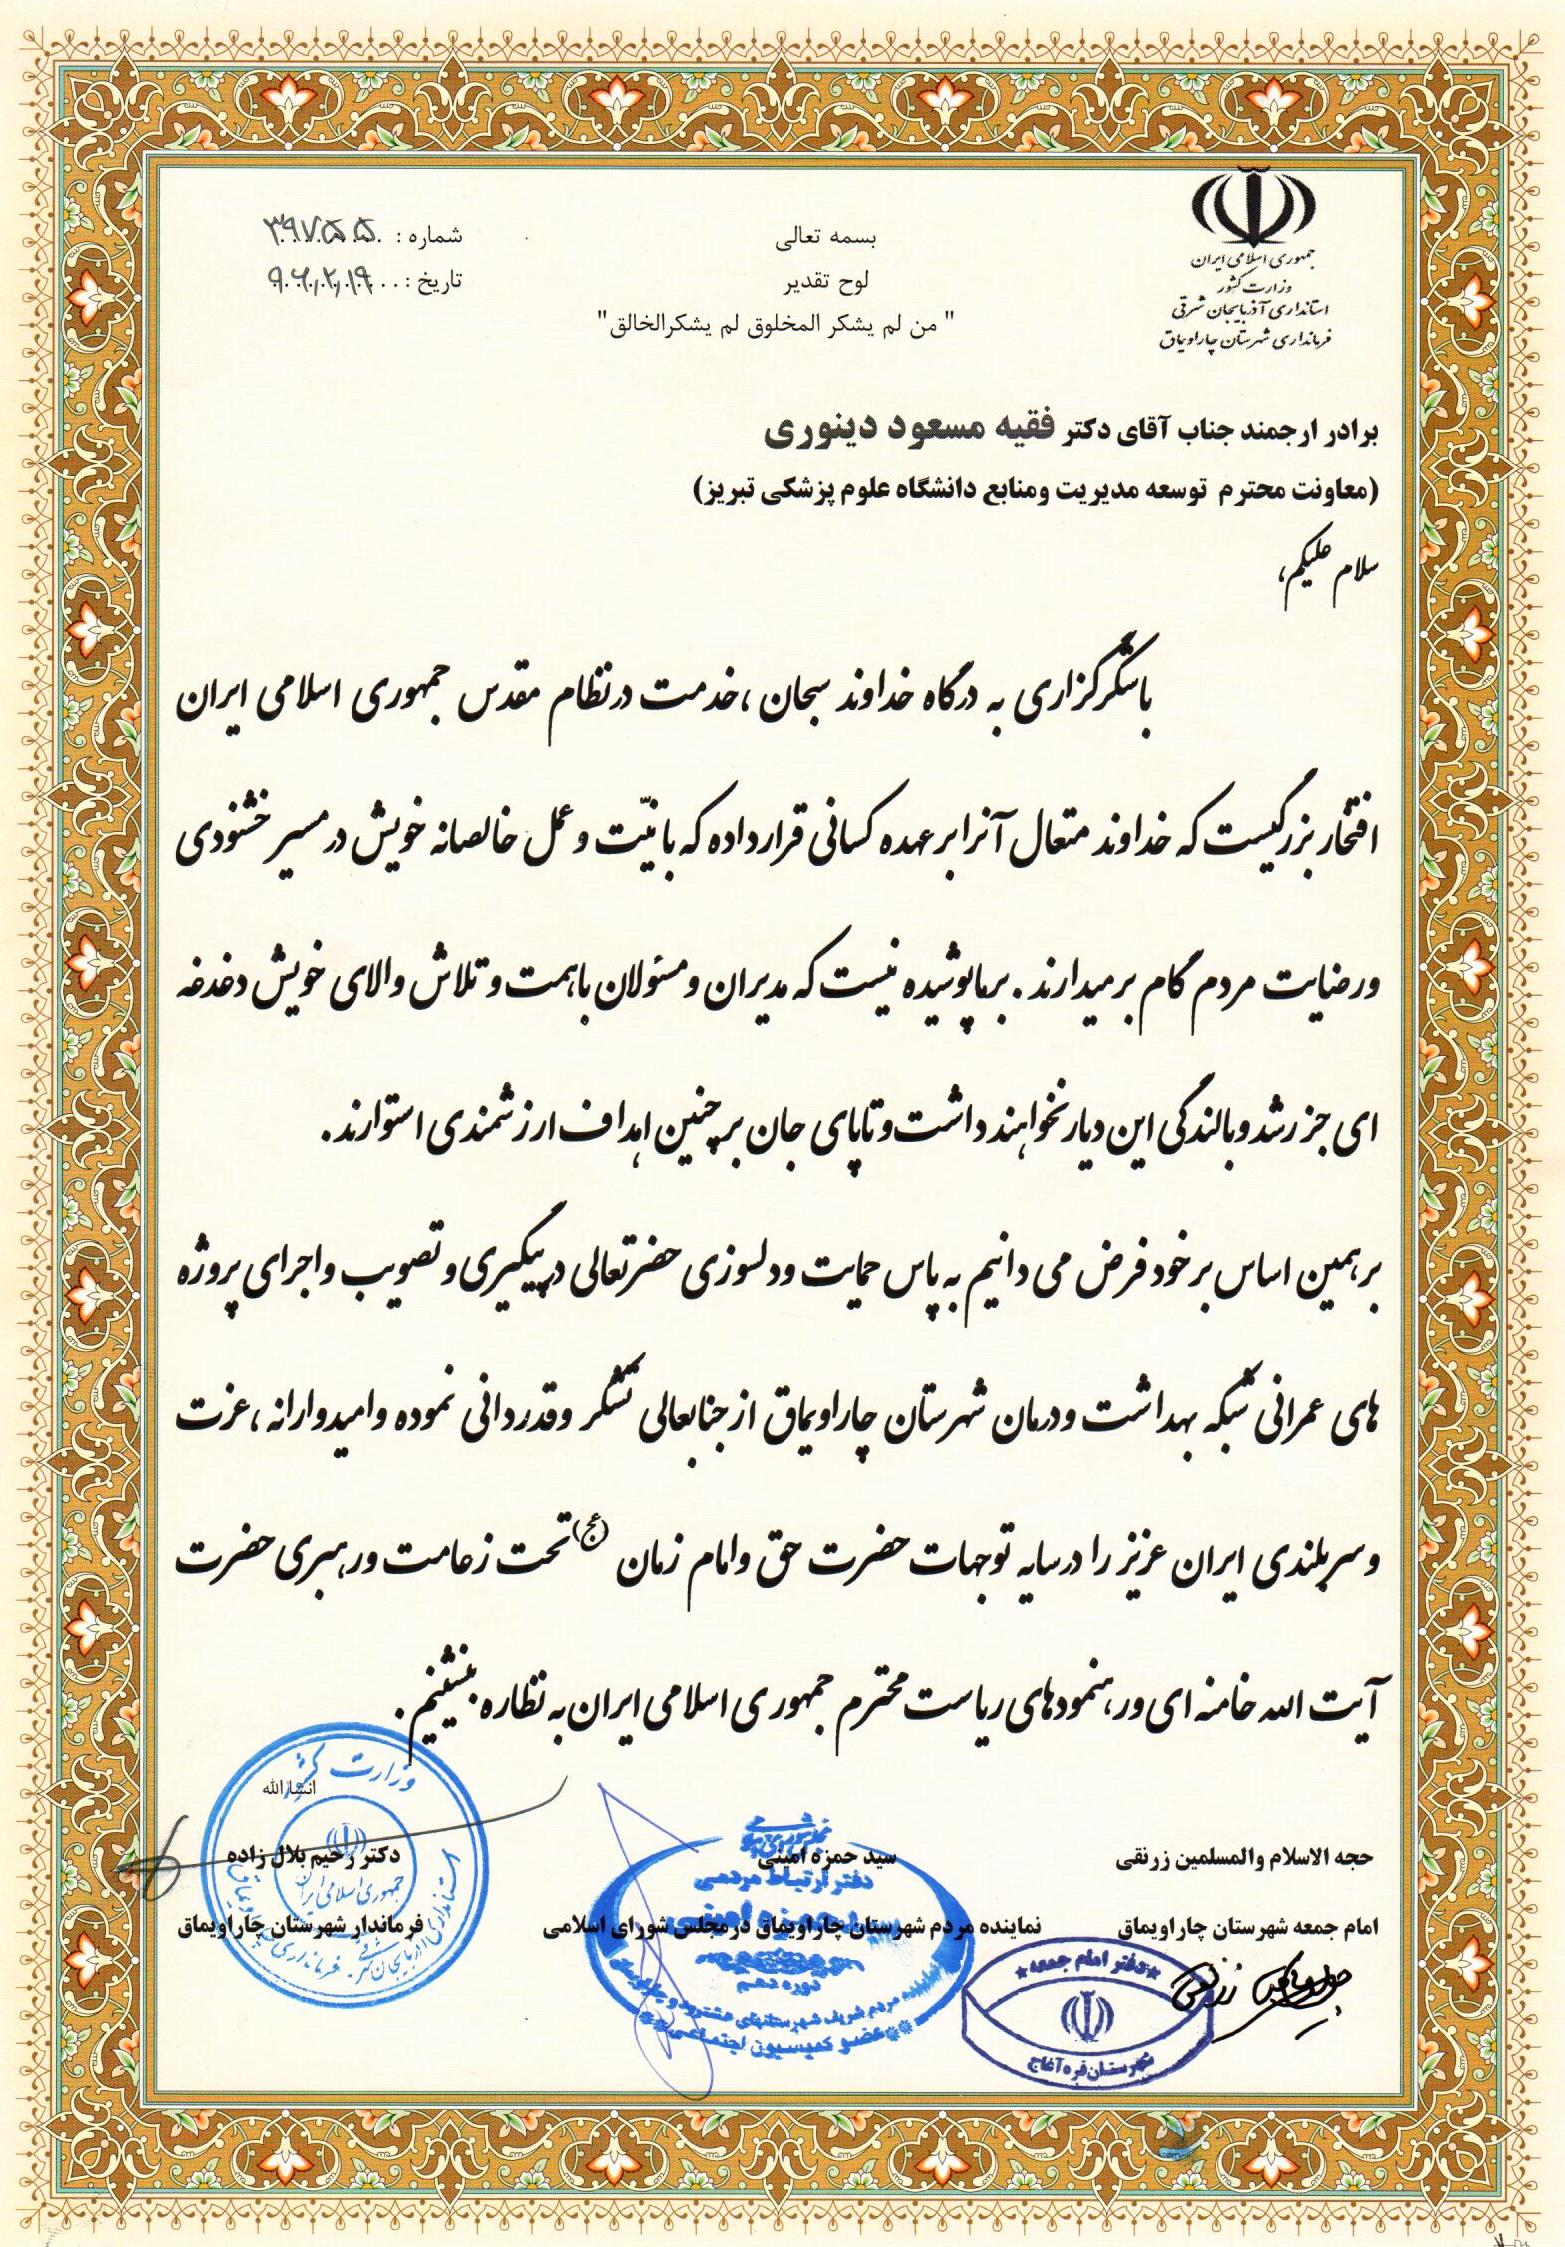 جمهوری اسلامی ایران
وزارت کشور
استانداری آذربایجان شرقی
فرمانداری شهرستان چاراویماق
بسمه تعالی
لوح تقدیر
" من لم یشکر المخلوق لم یشکرالخالق"
شماره :
تاریخ :
برادر ارجمند جناب آقای دکتر فقیه مسعود دینوری
(معاونت محترم توسعه مدیریت ومنابع دانشگاه علوم پزشکی تبریز)
سلام علیکم،
باشکرگزاری به درگاه خداوند سبحان ،خدمت درنظام مقدس جمهوری اسلامی ایران
افتخار بزرگیست که خداوند متعال آنرا بر عهده کسانی قرارداده که با نیّت و عمل خالصانه خویش در مسیر خشنودی
ورضایت مردم گام برمیدارند . برماپوشیده نیست که مدیران و مسئولان باهمت و تلاش والای خویش دغدغه
ای جز رشد و بالندگی این دیار نخواهند داشت و تاپای جان بر چنین اهداف ارزشمندی استوارند.
برهمین اساس بر خود فرض می دانیم به پاس حمایت ودلسوزی حضرتعالی درپیگیری و تصویب واجرای پروژه
های عمرانی شبکه بهداشت ودرمان شهرستان چاراویماق از جنابعالی تشکر وقدردانی نموده وامیدوارانه ،عزت
وسربلندی ایران عزیز را درسایه توجهات حضرت حق وامام زمان (عج) تحت زعامت ورهبری حضرت
آیت الله خامنه ای ورهنمودهای ریاست محترم جمهوری اسلامی ایران به نظاره بنشینیم .
انشاالله
حجه الاسلام والمسلمین زرنقی
سید حمزه امینی
دکتر رحیم بلال زاده
امام جمعه شهرستان چاراویماق
نماینده مردم شهرستان چاراویماق درمجلس شورای اسلامی
فرماندار شهرستان چاراویماق
دفتر امام جمعه
شهرستان قره آغاج
دفتر ارتباط مردمی
دوره دهم
عضو کمیسیون اجتماعی
وزارت کشور
جمهوری اسلامی ایران